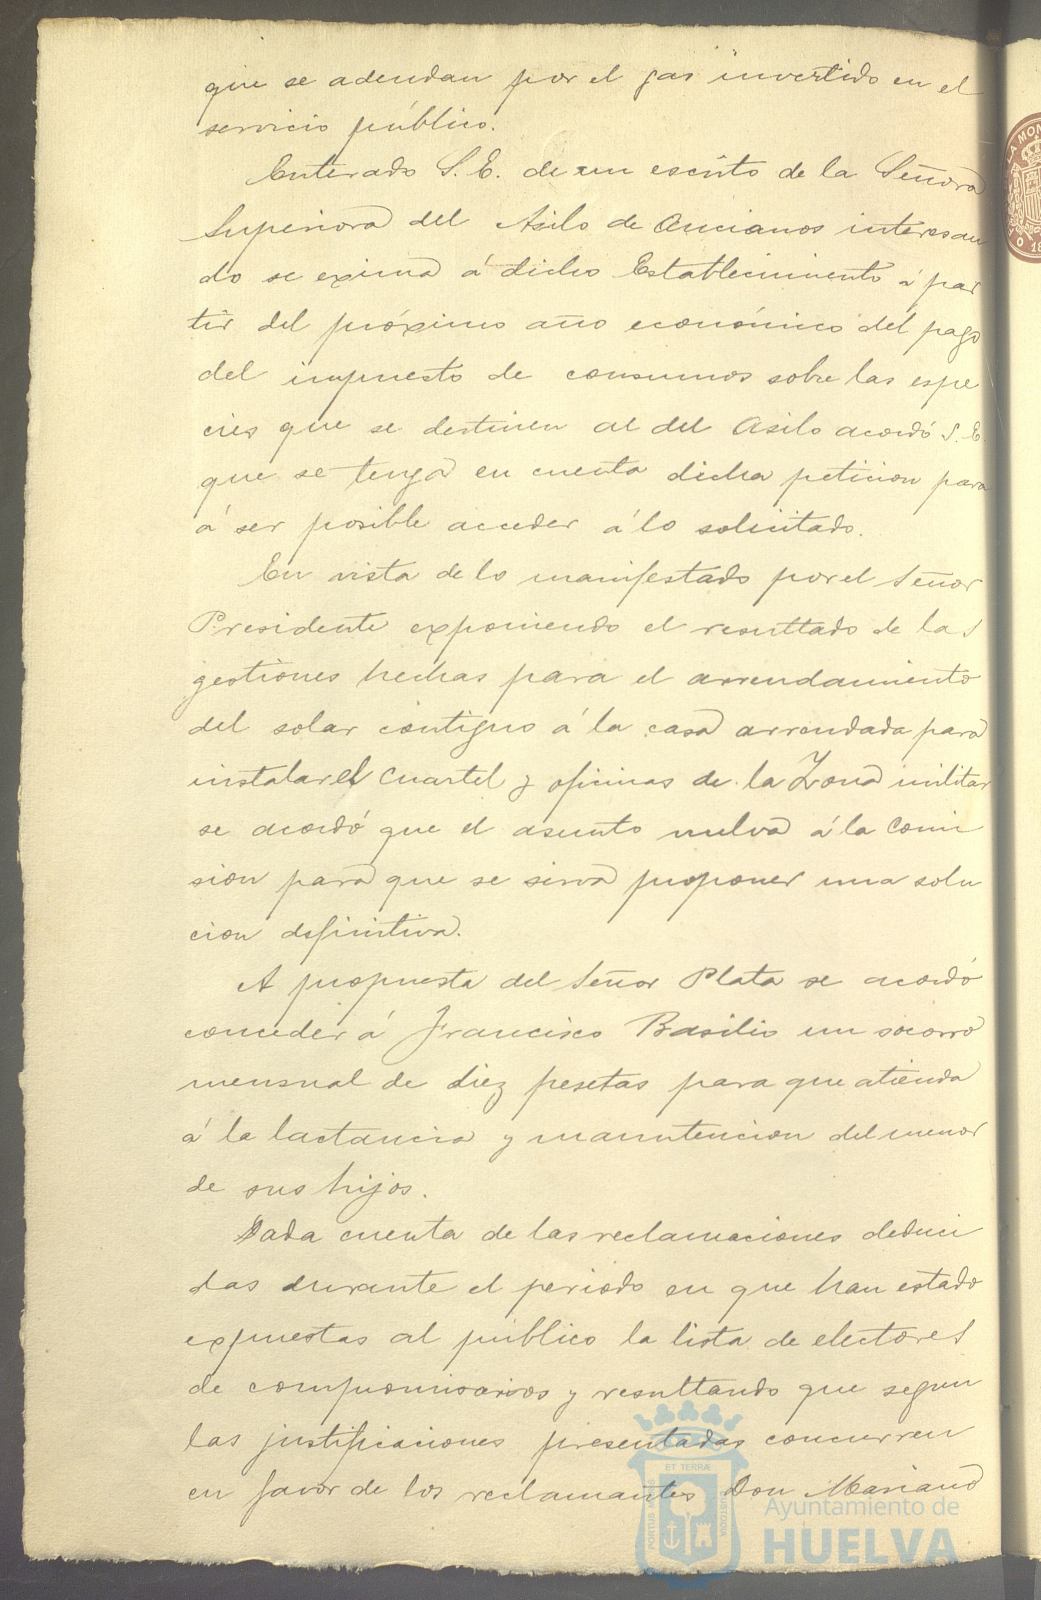 que se adeudan por el gas invertido en el
servicio público.
Enterado S. E. de un escrito de la Señora
Superiora del Asilo de Ancianos interesan
do se exima á dicho Establecimiento á par
tir del próximo año económico del pago
del impuesto de consumos sobre las espe
cies que se destinen al del Asilo acordó S. E.
que se tenga en cuenta dicha peticion para
á ser posible acceder á lo solicitado.
En vista de lo manifestado por el Señor
Presidente exponiendo el resultado de las
gestiones hechas para el arrendamiento
del solar contiguo á la casa arrendada para
instalar el cuartel y oficinas de la Zona militar
se acordó que el asunto vuelva á la Comi
sion para que se sirva proponer una solu
cion definitiva.
A propuesta del Señor Plata se acordó
conceder á Francisco Basilio un socorro
mensual de diez pesetas para que atienda
á la lactancia y manutencion del menor
de sus hijos.
Dada cuenta de las reclamaciones deduci
das durante el periodo en que han estado
expuestas al público la lista de electores
de compromisarios y resultando que segun
las justificaciones presentadas concurren
en favor de los reclamantes Don Mariano
ET TERRÆ
PORTUS MARIS
CUSTODIA
Ayuntamiento de
HUELVA